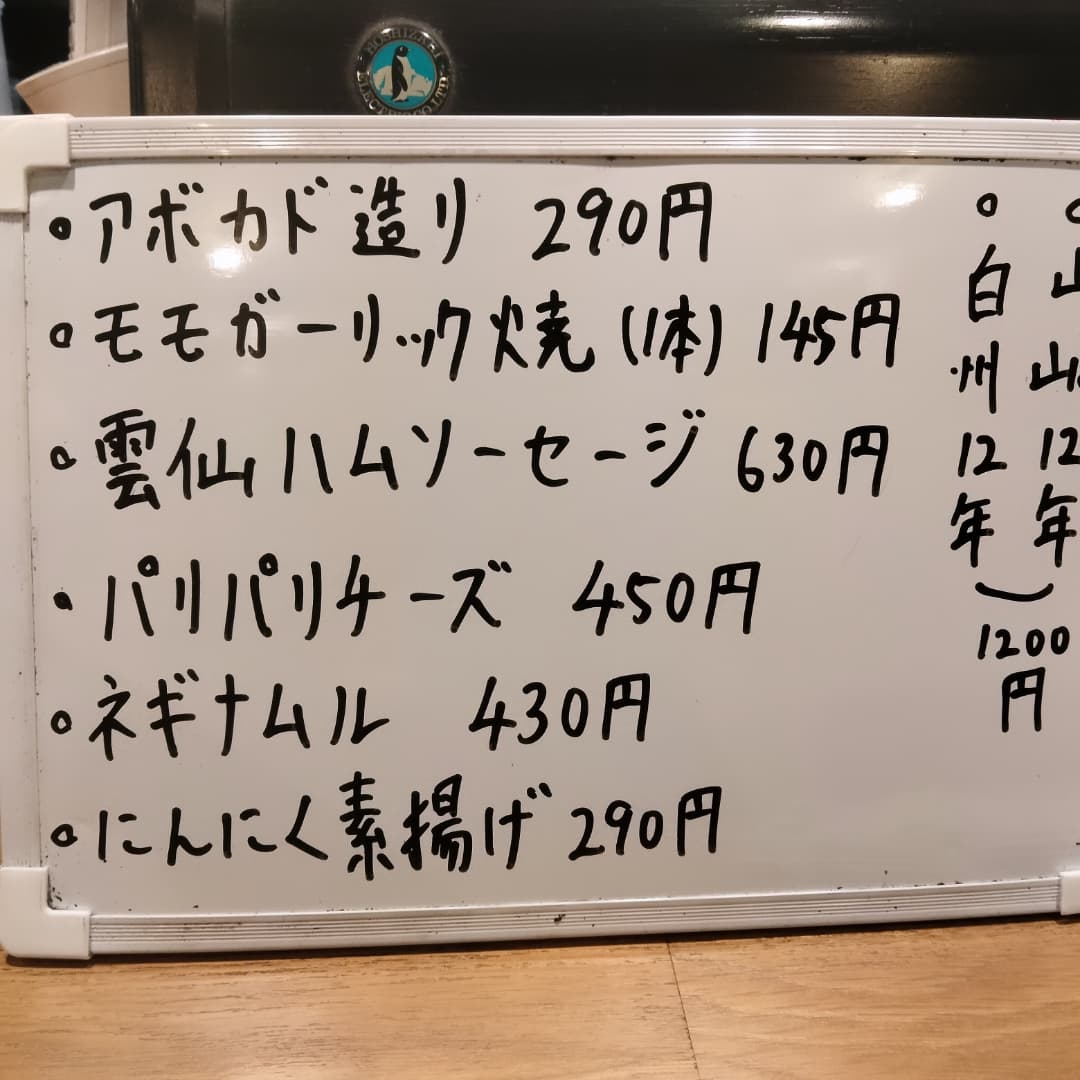 HOSHIZAKI
ELECTRIC CO.LTD
アボカド造り 290円
モモガーリック焼(1本) 145円
雲仙ハムソーセージ 630円
パリパリチーズ 450円
ネギナムル 430円
にんにく素揚げ 290円
白州12年
1200円